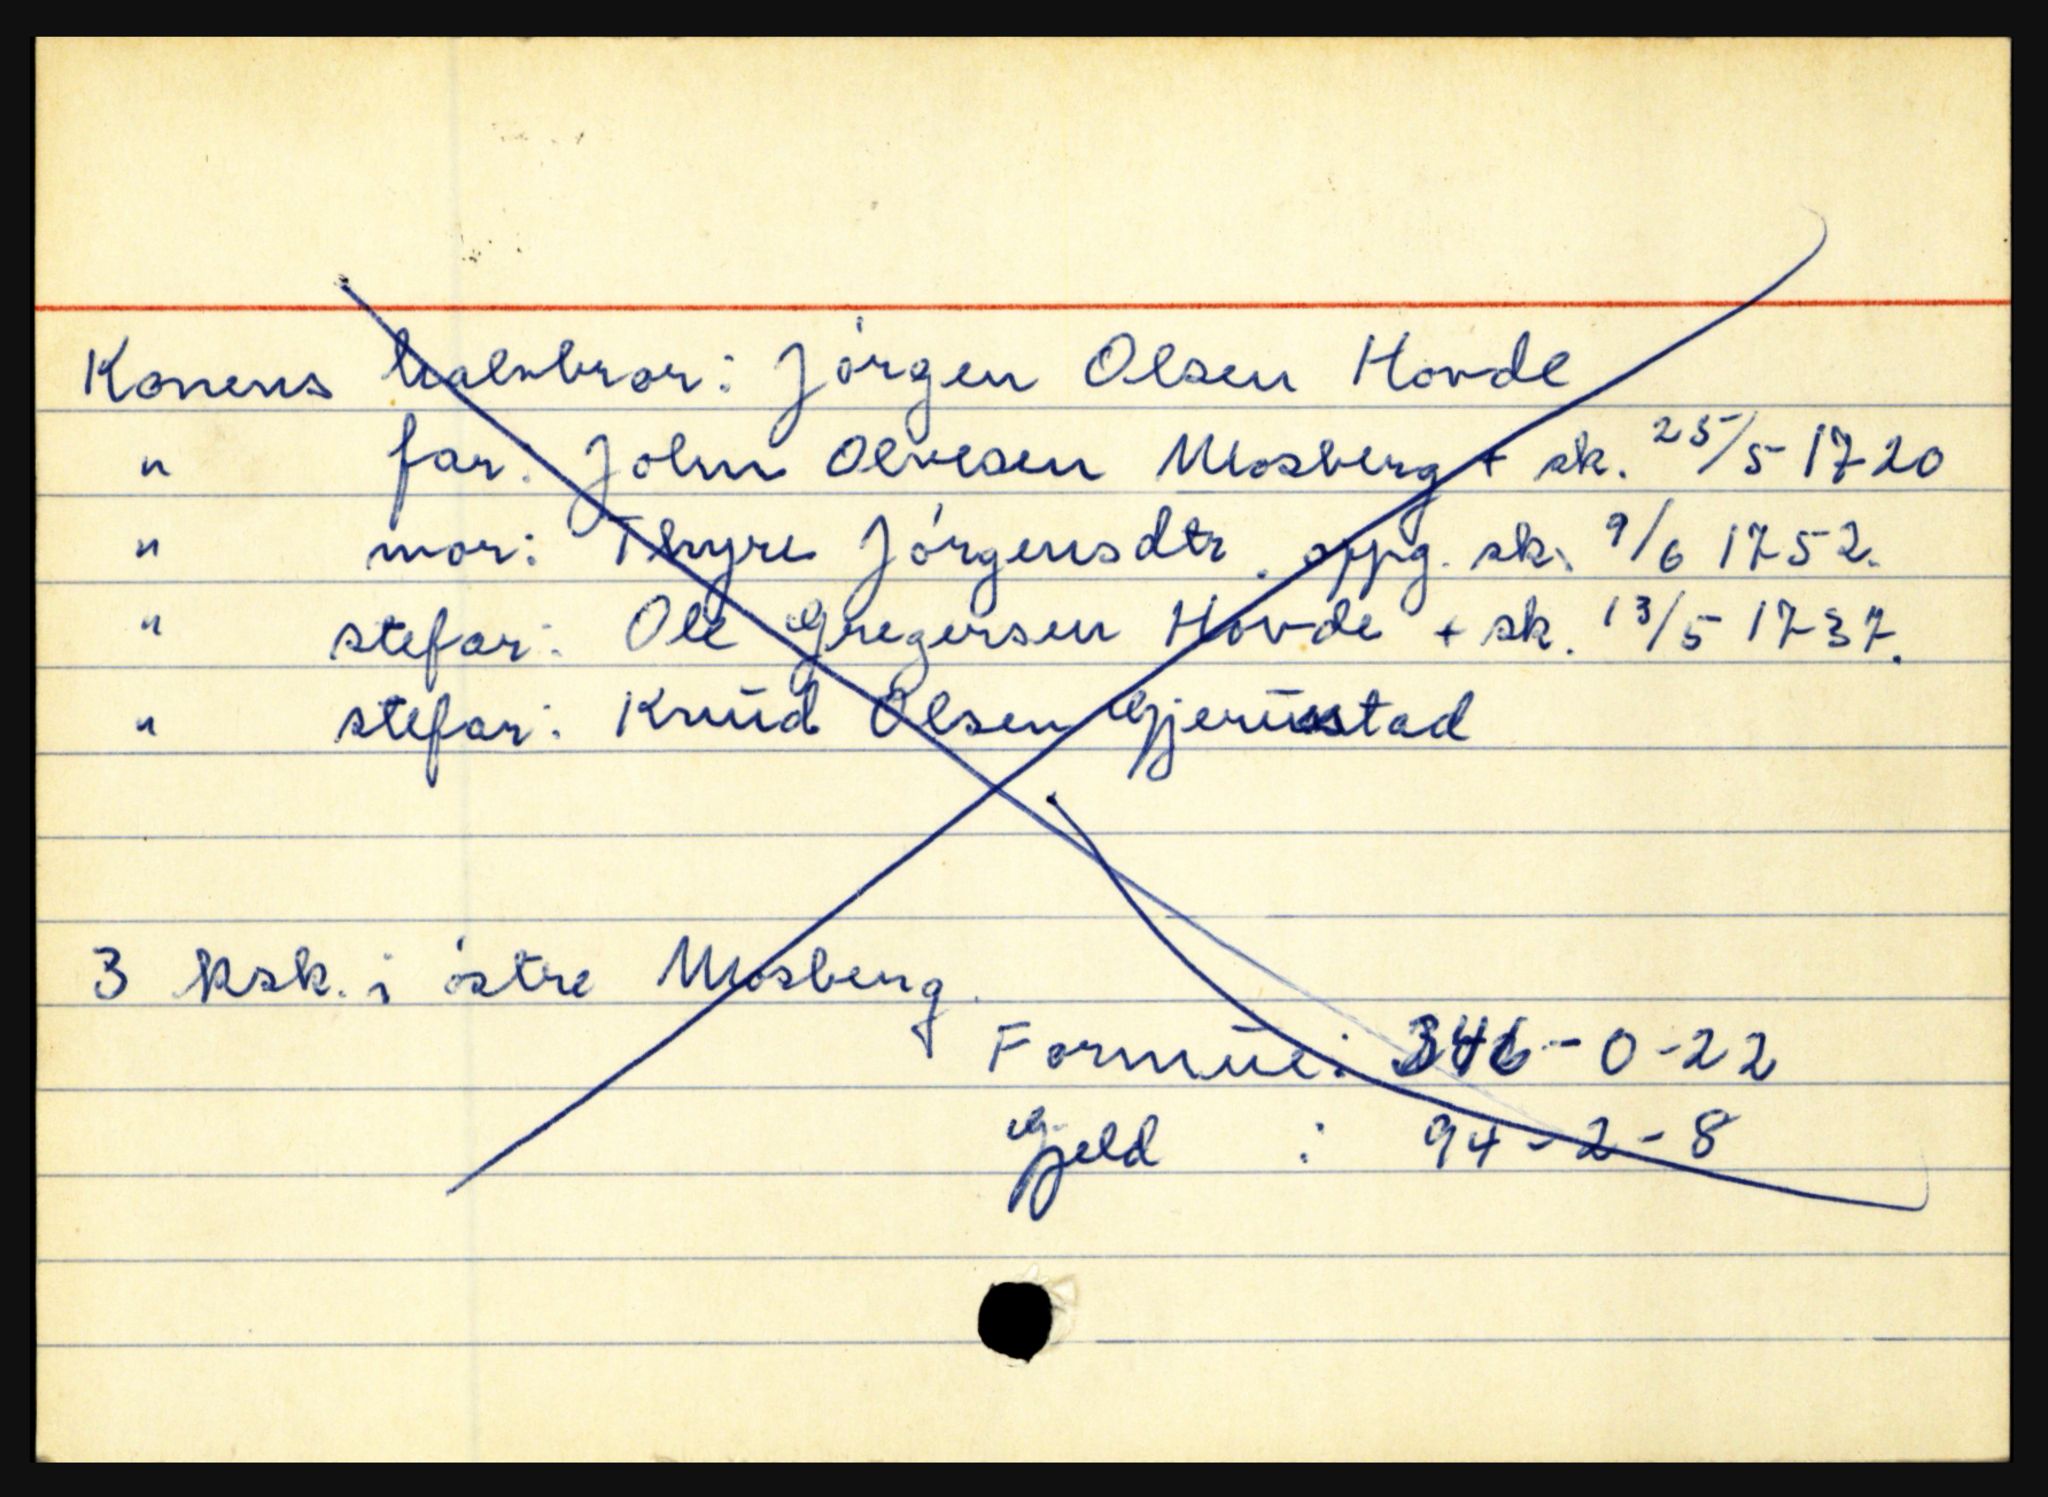 Konens halvbror: Jörgen Olsen Hovde
" far: John Olvesen Mosberg + sk. 25/5 1720
" mor: Thyre Jörgensdtr. oppg. sk. 9/6 1752.
" stefar: Ole Gregersen Hovde + sk. 13/5 1737.
" stefar: Knud Olsen Gjerustad
3 ksk. i östre Mosberg.
Formue: 346-0-22
Gjeld : 94-2-8